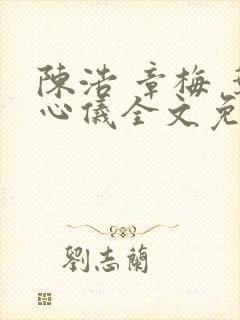 陳浩 章梅 葉
心儀全文免
劉志蘭